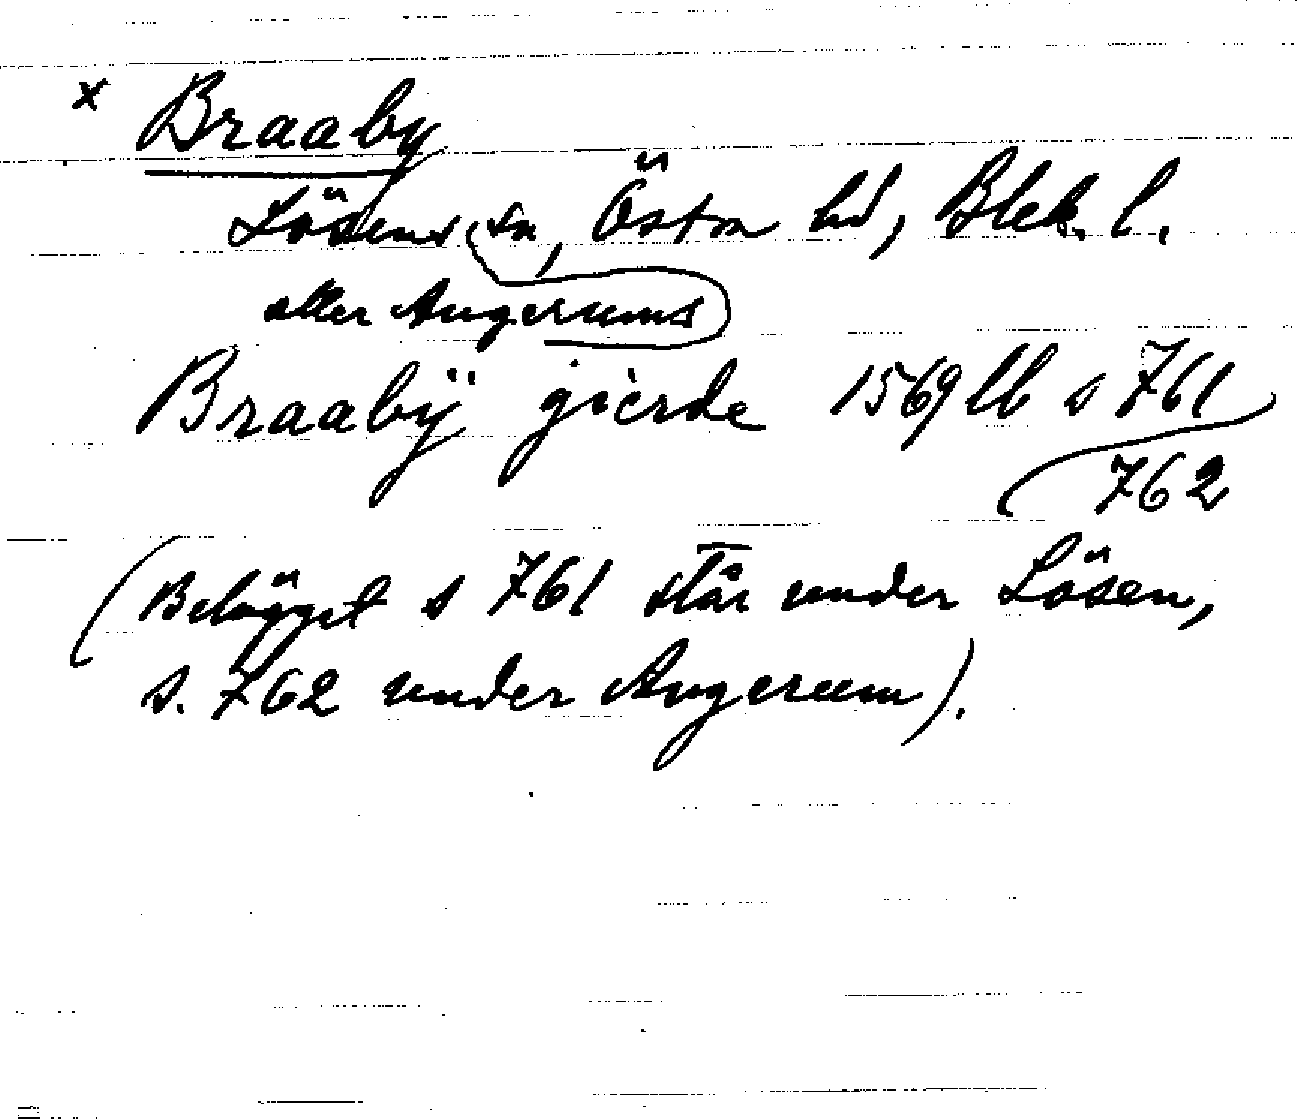 x Braaby
Lösens sn, Östra hd, Blek. l.
eller Augerums
Braabÿ gierde 1569 lb s 761
762
(Belägget s 761 står under Lösen,
s. 762 under Augerum).